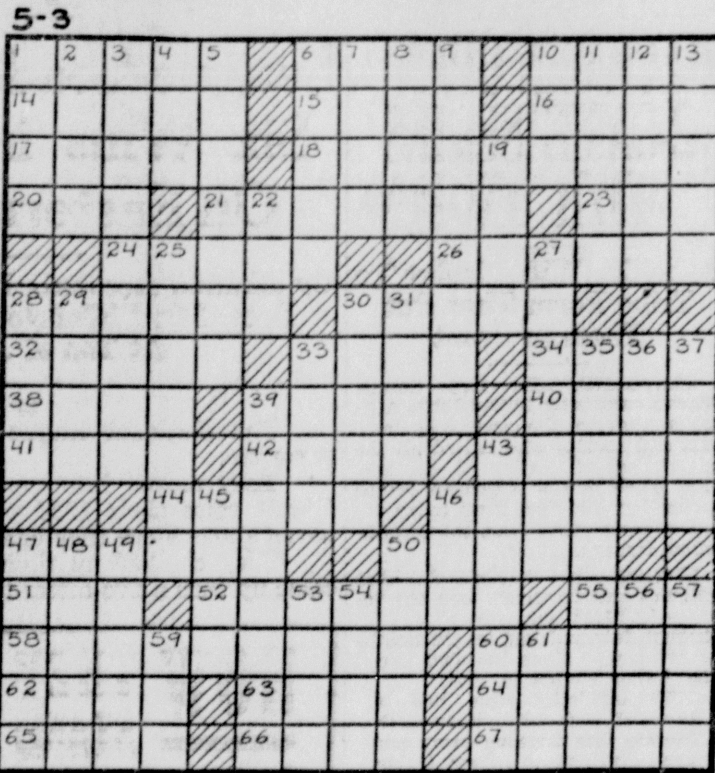 5-3
1 2 3 4 5 6 7 8 9 10 11 12 13
14 15 16
17 18 19
20 21 22 23
24 25 26 27
28 29 30 31
32 33 34 35 36 37
38 39 40
41 42 43
44 45 46
47 48 49 50
51 52 53 54 55 56 57
58 59 60 61
62 63 64
65 66 67